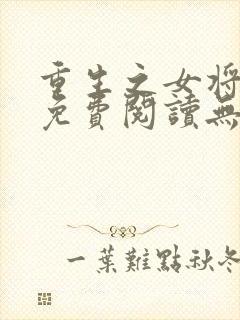 重生之女將
免費閱讀無
一葉難點秋冬